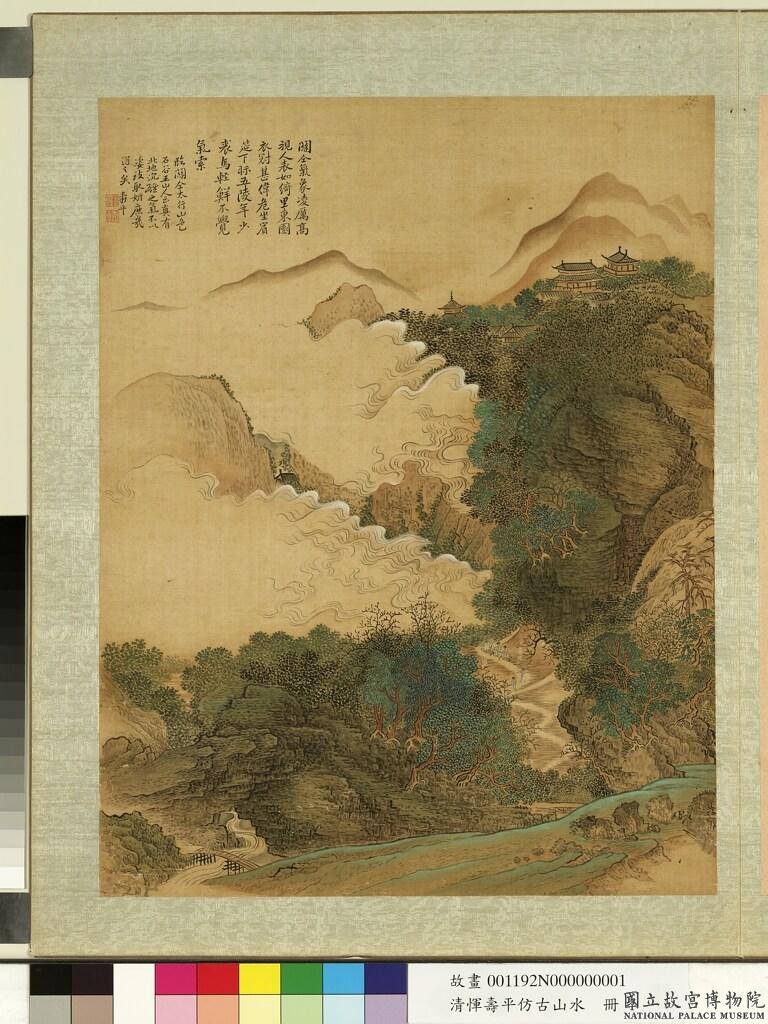 關仝氣象凌厲高
視人表如綺里東園
衣冠甚偉危坐賓
筵下眎五陵年少
裘馬輕鮮不覺
氣索
臨關仝太行山色
石谷王山人云真有
北地沉雄之氣不以
姿致取妍庶幾
得之矣 壽平
故畫 001192N000000001
清惲壽平仿古山水 冊
國立故宮博物院
NATIONAL PALACE MUSEUM